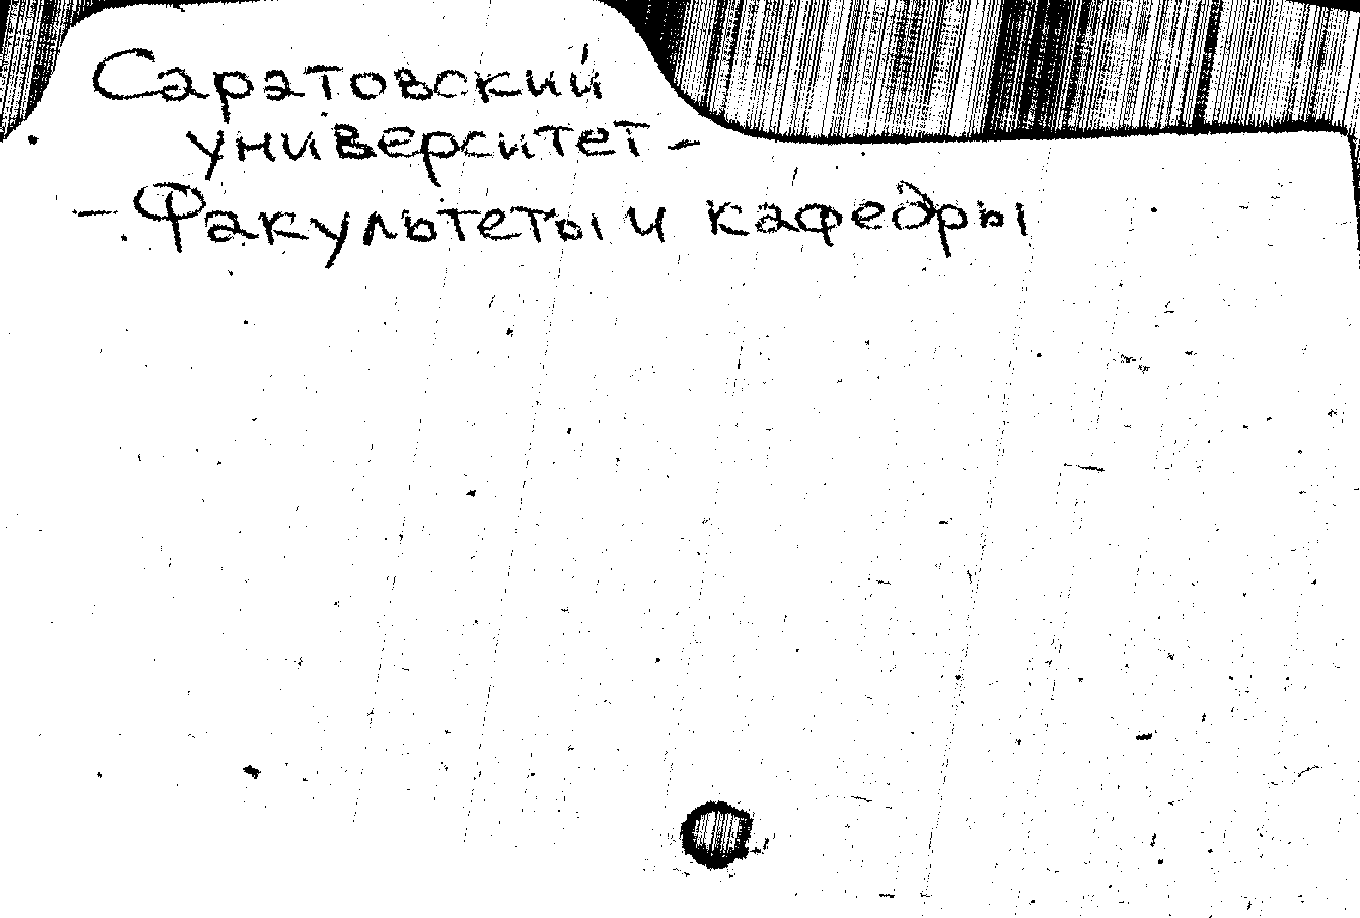 Саратовский
университет -
- Факультеты и кафедры